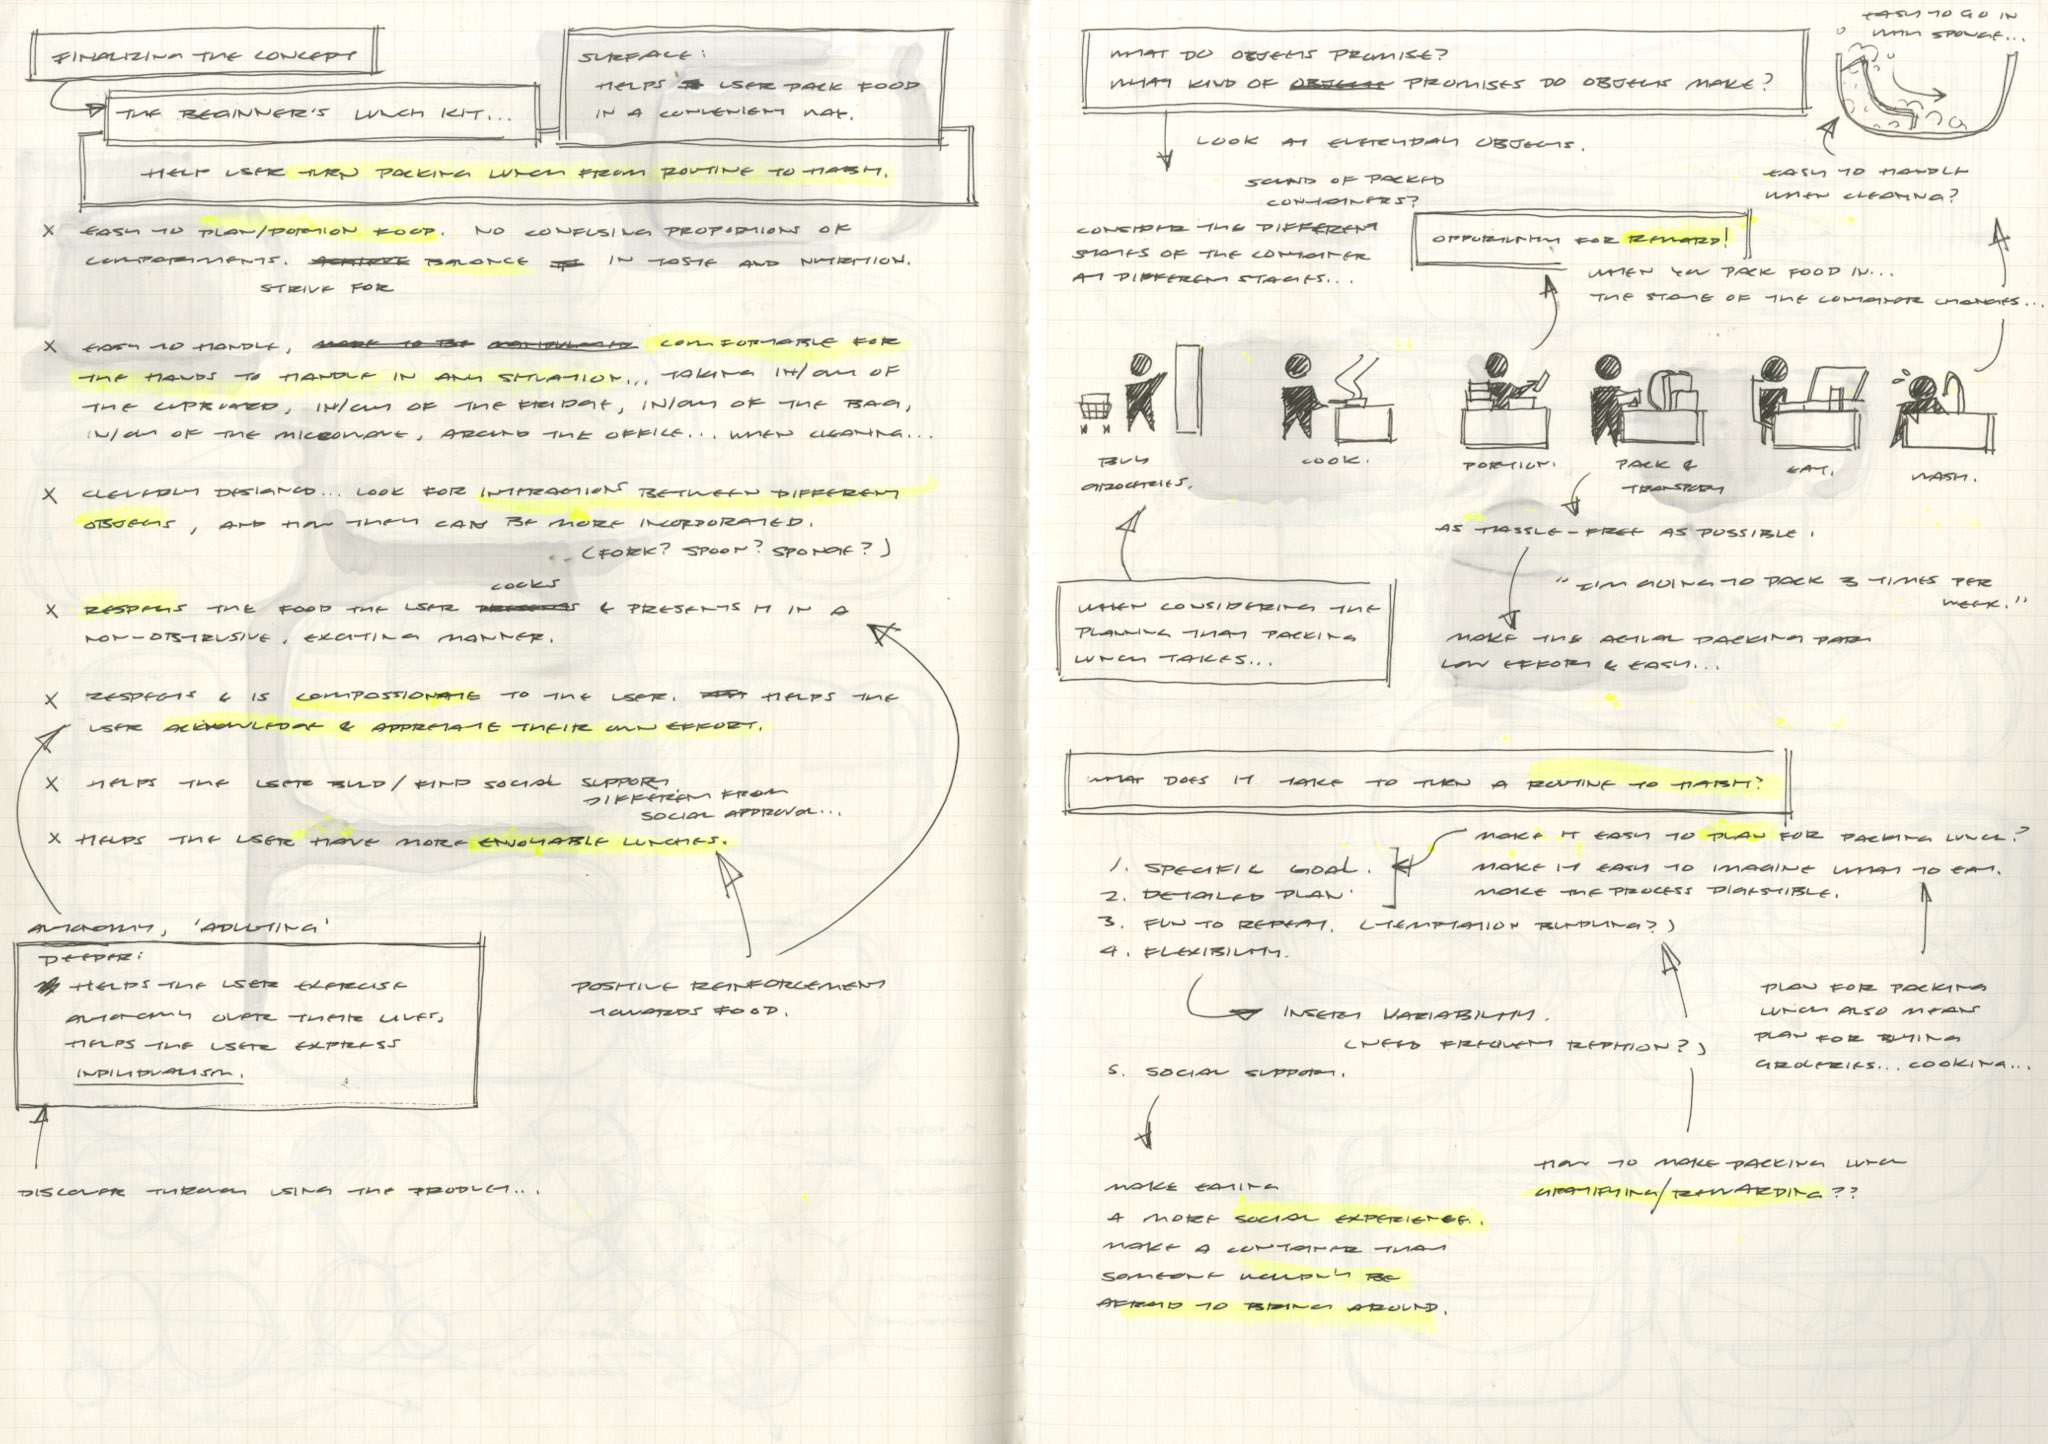 FINALIZING THE CONCEPT
THE BEGINNER'S LUNCH KIT...
SURFACE:
HELPS USER PACK FOOD
IN A CONVENIENT WAY.
HELP USER TURN PACKING LUNCH FROM ROUTINE TO HABIT.
X EASY TO PLAN/PORTION FOOD. NO CONFUSING PROPORTIONS OF
COMPARTMENTS. ACHIEVE BALANCE IN TASTE AND NUTRITION.
STRIVE FOR
X EASY TO HANDLE, COMFORTABLE FOR
THE HANDS TO HANDLE IN ANY SITUATION... TAKING IN/OUT OF
THE CUPBOARD, IN/OUT OF THE FRIDGE, IN/OUT OF THE BAG,
IN/OUT OF THE MICROWAVE, AROUND THE OFFICE... WHEN CLEANING...
X CLEVERLY DESIGNED... LOOK FOR INTERACTIONS BETWEEN DIFFERENT
OBJECTS, AND HOW THEY CAN BE MORE INCORPORATED.
(FORK? SPOON? SPONGE?)
COOKS
X RESPECTS THE FOOD THE USER & PRESENTS IT IN A
NON-OBTRUSIVE, EXCITING MANNER.
X RESPECTS & IS COMPASSIONATE TO THE USER. HELPS THE
USER ACKNOWLEDGE & APPRECIATE THEIR OWN EFFORT.
X HELPS THE USER BUILD/FIND SOCIAL SUPPORT
DIFFERENT FROM
SOCIAL APPROVAL...
X HELPS THE USER HAVE MORE ENJOYABLE LUNCHES.
AUTONOMY, 'ADULTING'
DEEPER:
HELPS THE USER EXERCISE
AUTONOMY OVER THEIR LIVES,
HELPS THE USER EXPRESS
INDIVIDUALISM.
POSITIVE REINFORCEMENT
TOWARDS FOOD.
DISCOVER THROUGH USING THE PRODUCT...
WHAT DO OBJECTS PROMISE?
WHAT KIND OF OBJECTS PROMISES DO OBJECTS MAKE?
EASY TO GO IN
WITH SPONGE...
LOOK AT EVERYDAY OBJECTS.
EASY TO HANDLE
WHEN CLEANING?
SOUND OF PACKED
CONTAINERS?
CONSIDER THE DIFFERENT
STATES OF THE CONTAINER
AT DIFFERENT STAGES...
OPPORTUNITY FOR REWARD!
WHEN YOU PACK FOOD IN...
THE STATE OF THE CONTAINER CHANGES...
BUY
GROCERIES.
COOK.
PORTION.
PACK &
TRANSPORT
EAT.
WASH.
AS HASSLE-FREE AS POSSIBLE.
"I'M GOING TO PACK 3 TIMES PER
WEEK."
WHEN CONSIDERING THE
PLANNING THAT PACKING
LUNCH TAKES...
MAKE THE ACTUAL PACKING PART
LOW EFFORT & EASY...
WHAT DOES IT TAKE TO TURN A ROUTINE TO HABIT?
MAKE IT EASY TO PLAN FOR PACKING LUNCH?
MAKE IT EASY TO IMAGINE WHAT TO EAT.
MAKE THE PROCESS DIGESTIBLE.
1. SPECIFIC GOAL.
2. DETAILED PLAN
3. FUN TO REPEAT. (TEMPTATION BUNDLING?)
4. FLEXIBILITY.
INSERT VARIABILITY.
(NEED FREQUENT REPTION?)
5. SOCIAL SUPPORT.
PLAN FOR PACKING
LUNCH ALSO MEANS
PLAN FOR BUYING
GROCERIES... COOKING...
HOW TO MAKE PACKING LUNCH
GRATIFYING/REWARDING??
MAKE EATING
A MORE SOCIAL EXPERIENCE.
MAKE A CONTAINER THAT
SOMEONE WOULDN'T BE
AFRAID TO BRING AROUND.